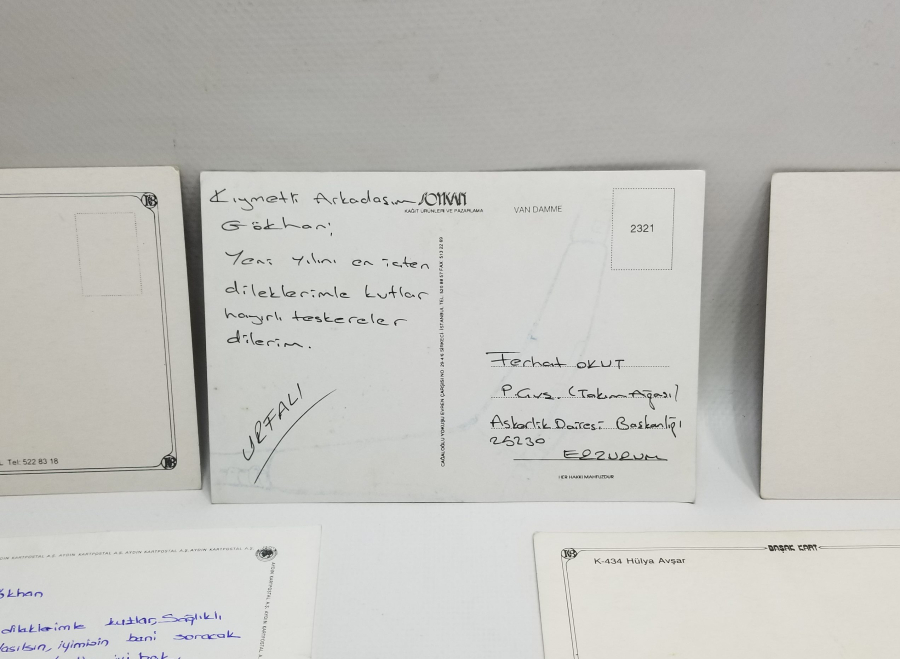 Kıymetli Arkadaşım
Gökhan;
Yeni yılını en içten
dileklerimle kutlar
hayırlı teskereler
dilerim.
URFALI
SOYKAN
KAĞIT ÜRÜNLERİ VE PAZARLAMA
VAN DAMME
2321
CAĞALOĞLU YOKUŞU EVREN ÇARŞISI NO: 29-46 SİRKECİ İSTANBUL TEL: FAX: 513 22 60
Ferhat OKUT
P. Çvş. (Takım Ağası)
Askerlik Dairesi Başkanlığı
25230
ERZURUM
HER HAKKI MAHFUZDUR
Tel: 522 83 18
AYDIN KARTPOSTAL A.Ş. AYDIN KARTPOSTAL A.Ş. AYDIN KARTPOSTAL A.Ş.
dileklerimle kutlar, Sağlıklı
iyimisin beni soracak
BAŞAK KART
K-434 Hülya Avşar